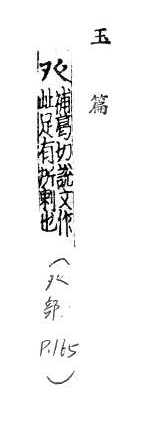 玉篇
癶
補葛切說文作
𣥠足有所剌也
(癶部. P.165)